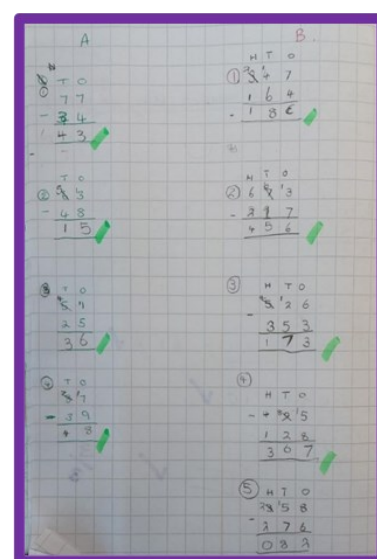 A
T O
7 7
- 3 4
4 3
② T O
6 3
- 4 8
1 5
③ T O
5 1
2 5
3 6
④ T O
8 7
- 3 9
4 8
B
H T O
① 3 4 7
1 6 4
- 1 8
② H T O
6 3
- 2 9 7
4 5 6
③ H T O
5 2 6
- 3 5 3
1 7 3
④ H T O
- 4 9 5
1 2 8
3 6 7
⑤ H T O
3 5 8
- 2 7 6
0 8 2